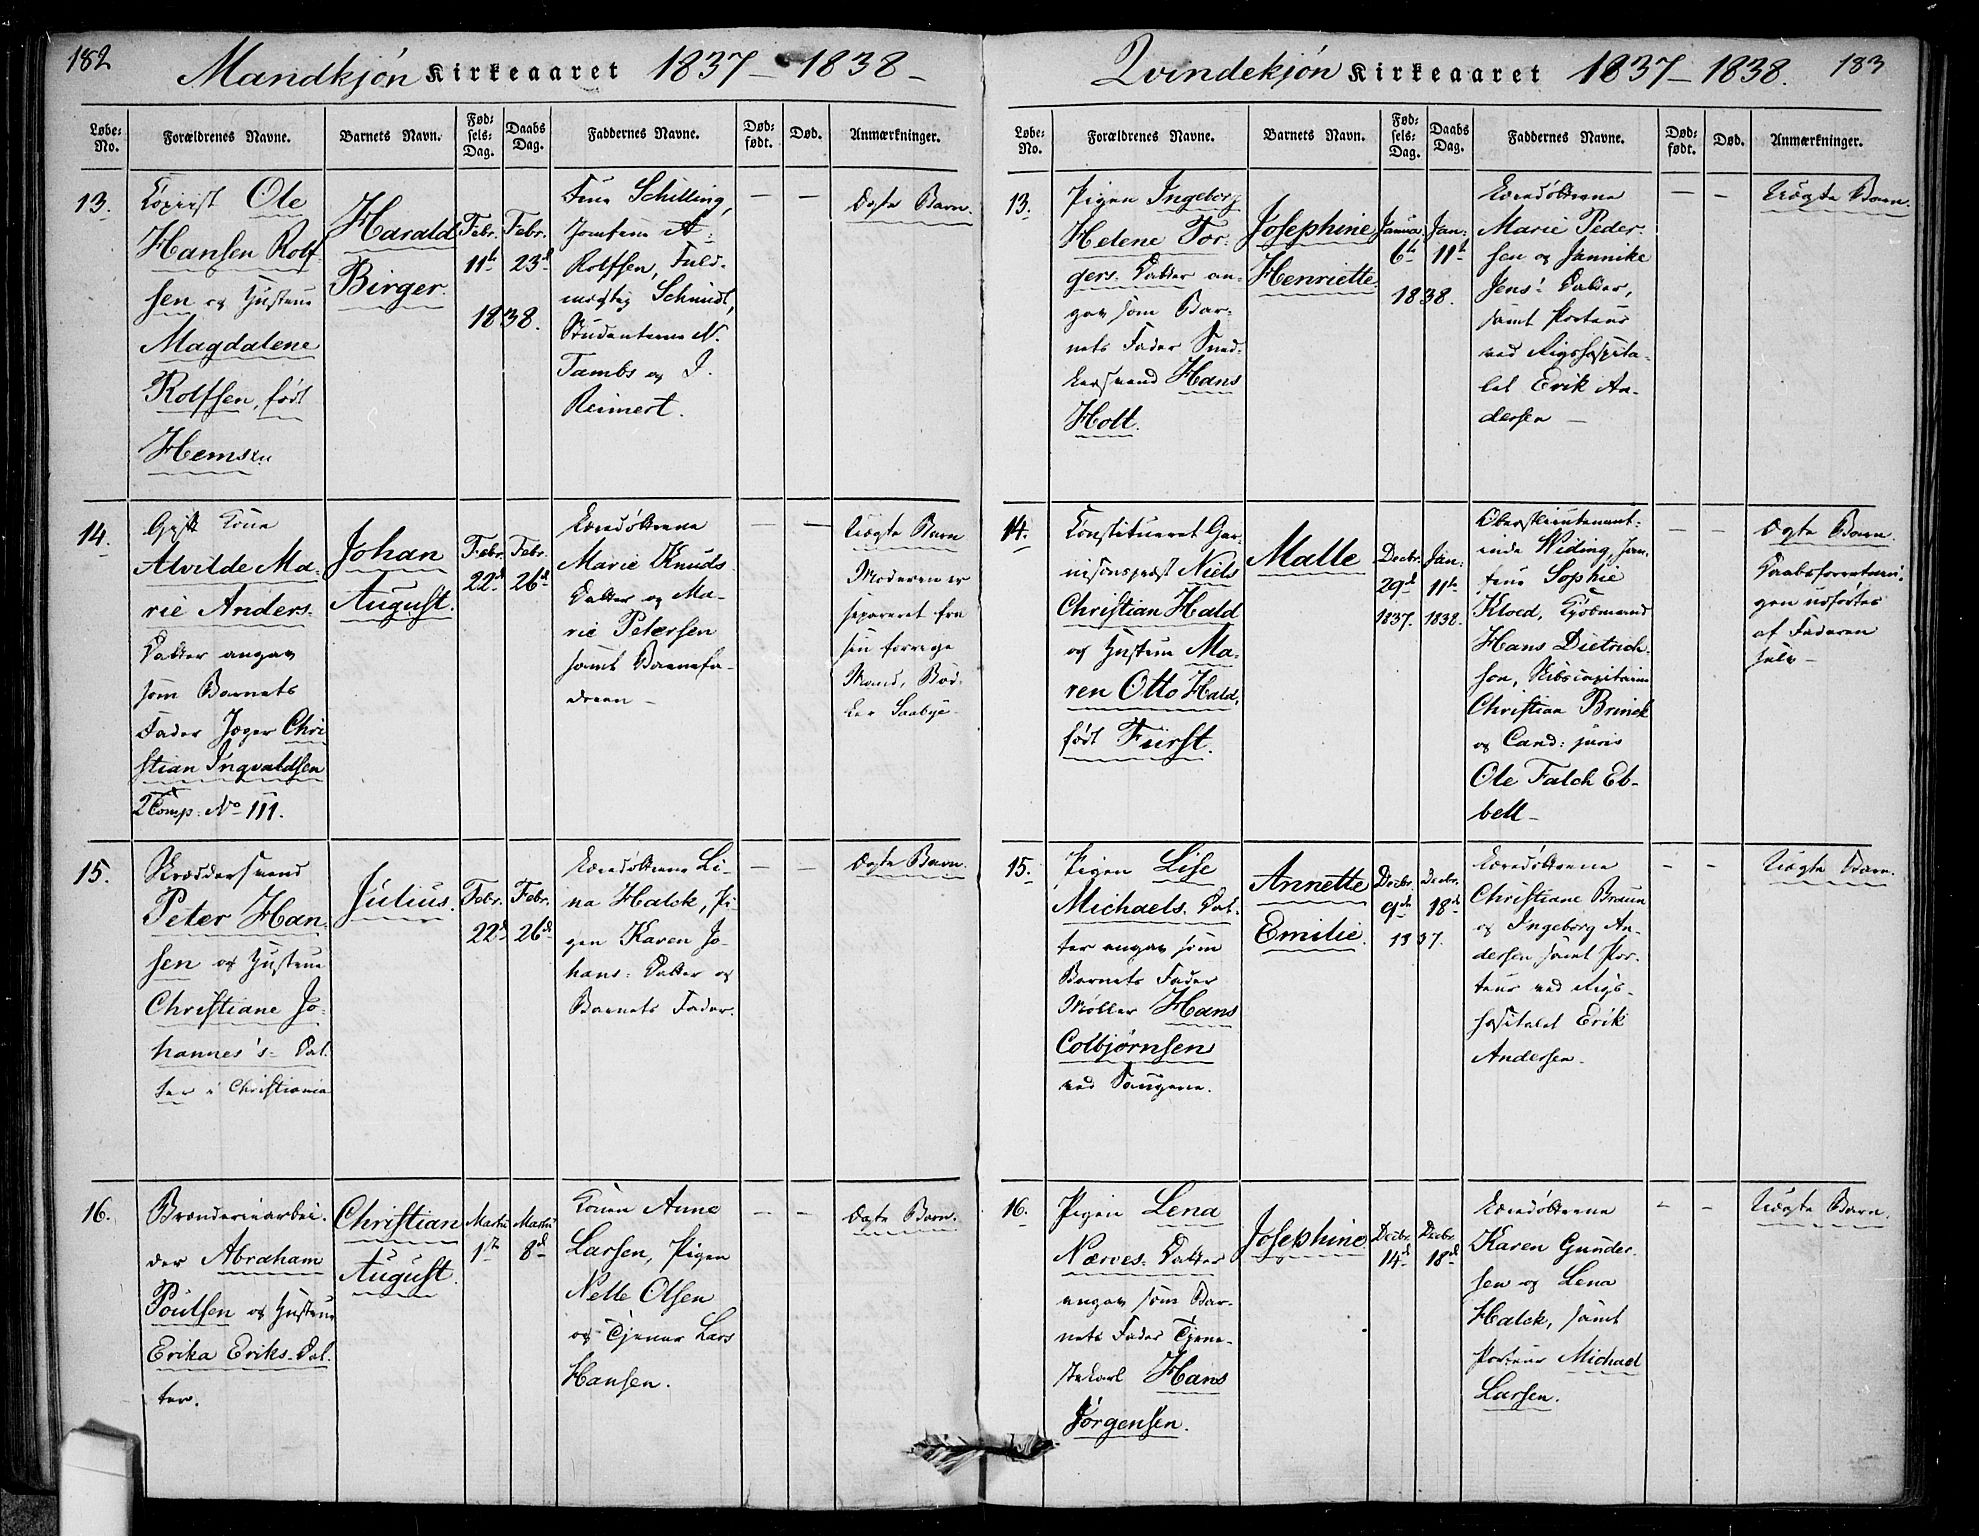 182
Mandkjøn Kirkeaaret 1837–1838–
Løbe-No.
Forældrenes Navne.
Barnets Navn.
Fødsels-Dag.
Daabs Dag.
Faddernes Navne.
Død-født.
Død.
Anmærkninger.
13.
Copiist Ole
Hansen Rolf-
sen og Hustrue
Magdalene
Rolfsen, født
Hemsen
Harald
Birger.
Febr.
11te
1838.
Febr.
23de
Frue Schilling,
Jomfrue A.
Rolfsen, Fuld-
mægtig Schmidt,
Studenterne N.
Tambs og J.
Reimert.
— —
Ægte Barn.
14.
Gift Kone
Alvilde Ma-
rie Anders-
Datter angav
som Barnets
Fader Jæger Chri-
stian Ingvaldsen
2 Comp: No 111.
Johan
August.
Febr.
22de
Febr.
26de
Læredøttrene
Marie Knuds
Datter og Ma-
rie Petersen
samt Barnefa-
deren –
— —
Uægte Barn
Moderen er
separeret fra
sin forrige
Mand, Bød-
ker Saabye.
15.
Skræddersvend
Peter Han-
sen og Hustrue
Christiane Jo-
hannes's Dat-
ter i Christiania
Julius.
Febr.
22de
Febr.
26de
Læredøttrene Li-
na Halck, Pi-
gen Karen Jo-
hans: Datter og
Barnets Fader.
— —
Ægte Barn.
16.
Brænderiearbei-
der Abraham
Poulsen og Hustrue
Erika Eriks-Dat-
ter.
Christian
August.
Martii
1ste
Martii
8de
Konen Anne
Larsen, Pigen
Nelle Olsen
og Tjener Lars
Hansen.
— —
Ægte Barn.
Qvindekjøn Kirkeaaret 1837–1838.
183
Løbe-No.
Forældrenes Navne.
Barnets Navn.
Fødsels-Dag.
Daabs Dag.
Faddernes Navne.
Død-født.
Død.
Anmærkninger.
13.
Pigen Ingeborg
Helene Tor-
gers. Datter an-
gav som Bar-
nets Fader Sned-
kersvend Hans
Holt.
Josephine
Henriette.
Janua.
6te
1838.
Jan:
11te
Læredøttrene
Marie Peder-
sen og Jannike
Jens: Datter,
samt Porteur
ved Rigshospita-
let Erik An-
dersen –
— —
Uægte Barn.
14.
Constitueret Gar-
nisonspræst Niels
Christian Hald
og Hustrue Ma-
ren Otto Hald,
født Fürst.
Malle
Decbr.
29de
1837.
Jan:
11te
1838.
Oberstlieutenant-
inde Widing, Jom-
frue Sophie
Kloed, Kjøbmand
Hans Dietrich-
son, Skibscapitain
Christian Brinck
og Cand: juris
Ole Falch Eb-
bell –
— —
Ægte Barn.
Daabsforretnin-
gen udførtes
af Faderen
selv –
15.
Pigen Lise
Michaels. Dat-
ter angav som
Barnets Fader
Møller Hans
Colbjørnsen
ved Saugene.
Annette
Emilie.
Decbr.
9de
1837.
Decbr.
18de
Læredøttrene
Christiane Braun
og Ingeborg An-
dersen samt Por-
teur ved Rigs-
hospitalet Erik
Andersen.
— —
Uægte Barn.
16.
Pigen Lena
Nærves. Datter
angav som Bar-
nets Fader Tjene-
stekarl Hans
Jørgensen.
Josephine.
Decbr.
14de
Decbr.
18de
Læredøttrene
Karen Gunder-
sen og Lena
Halck, samt
Porteur Michael
Larsen.
— —
Uægte Barn.